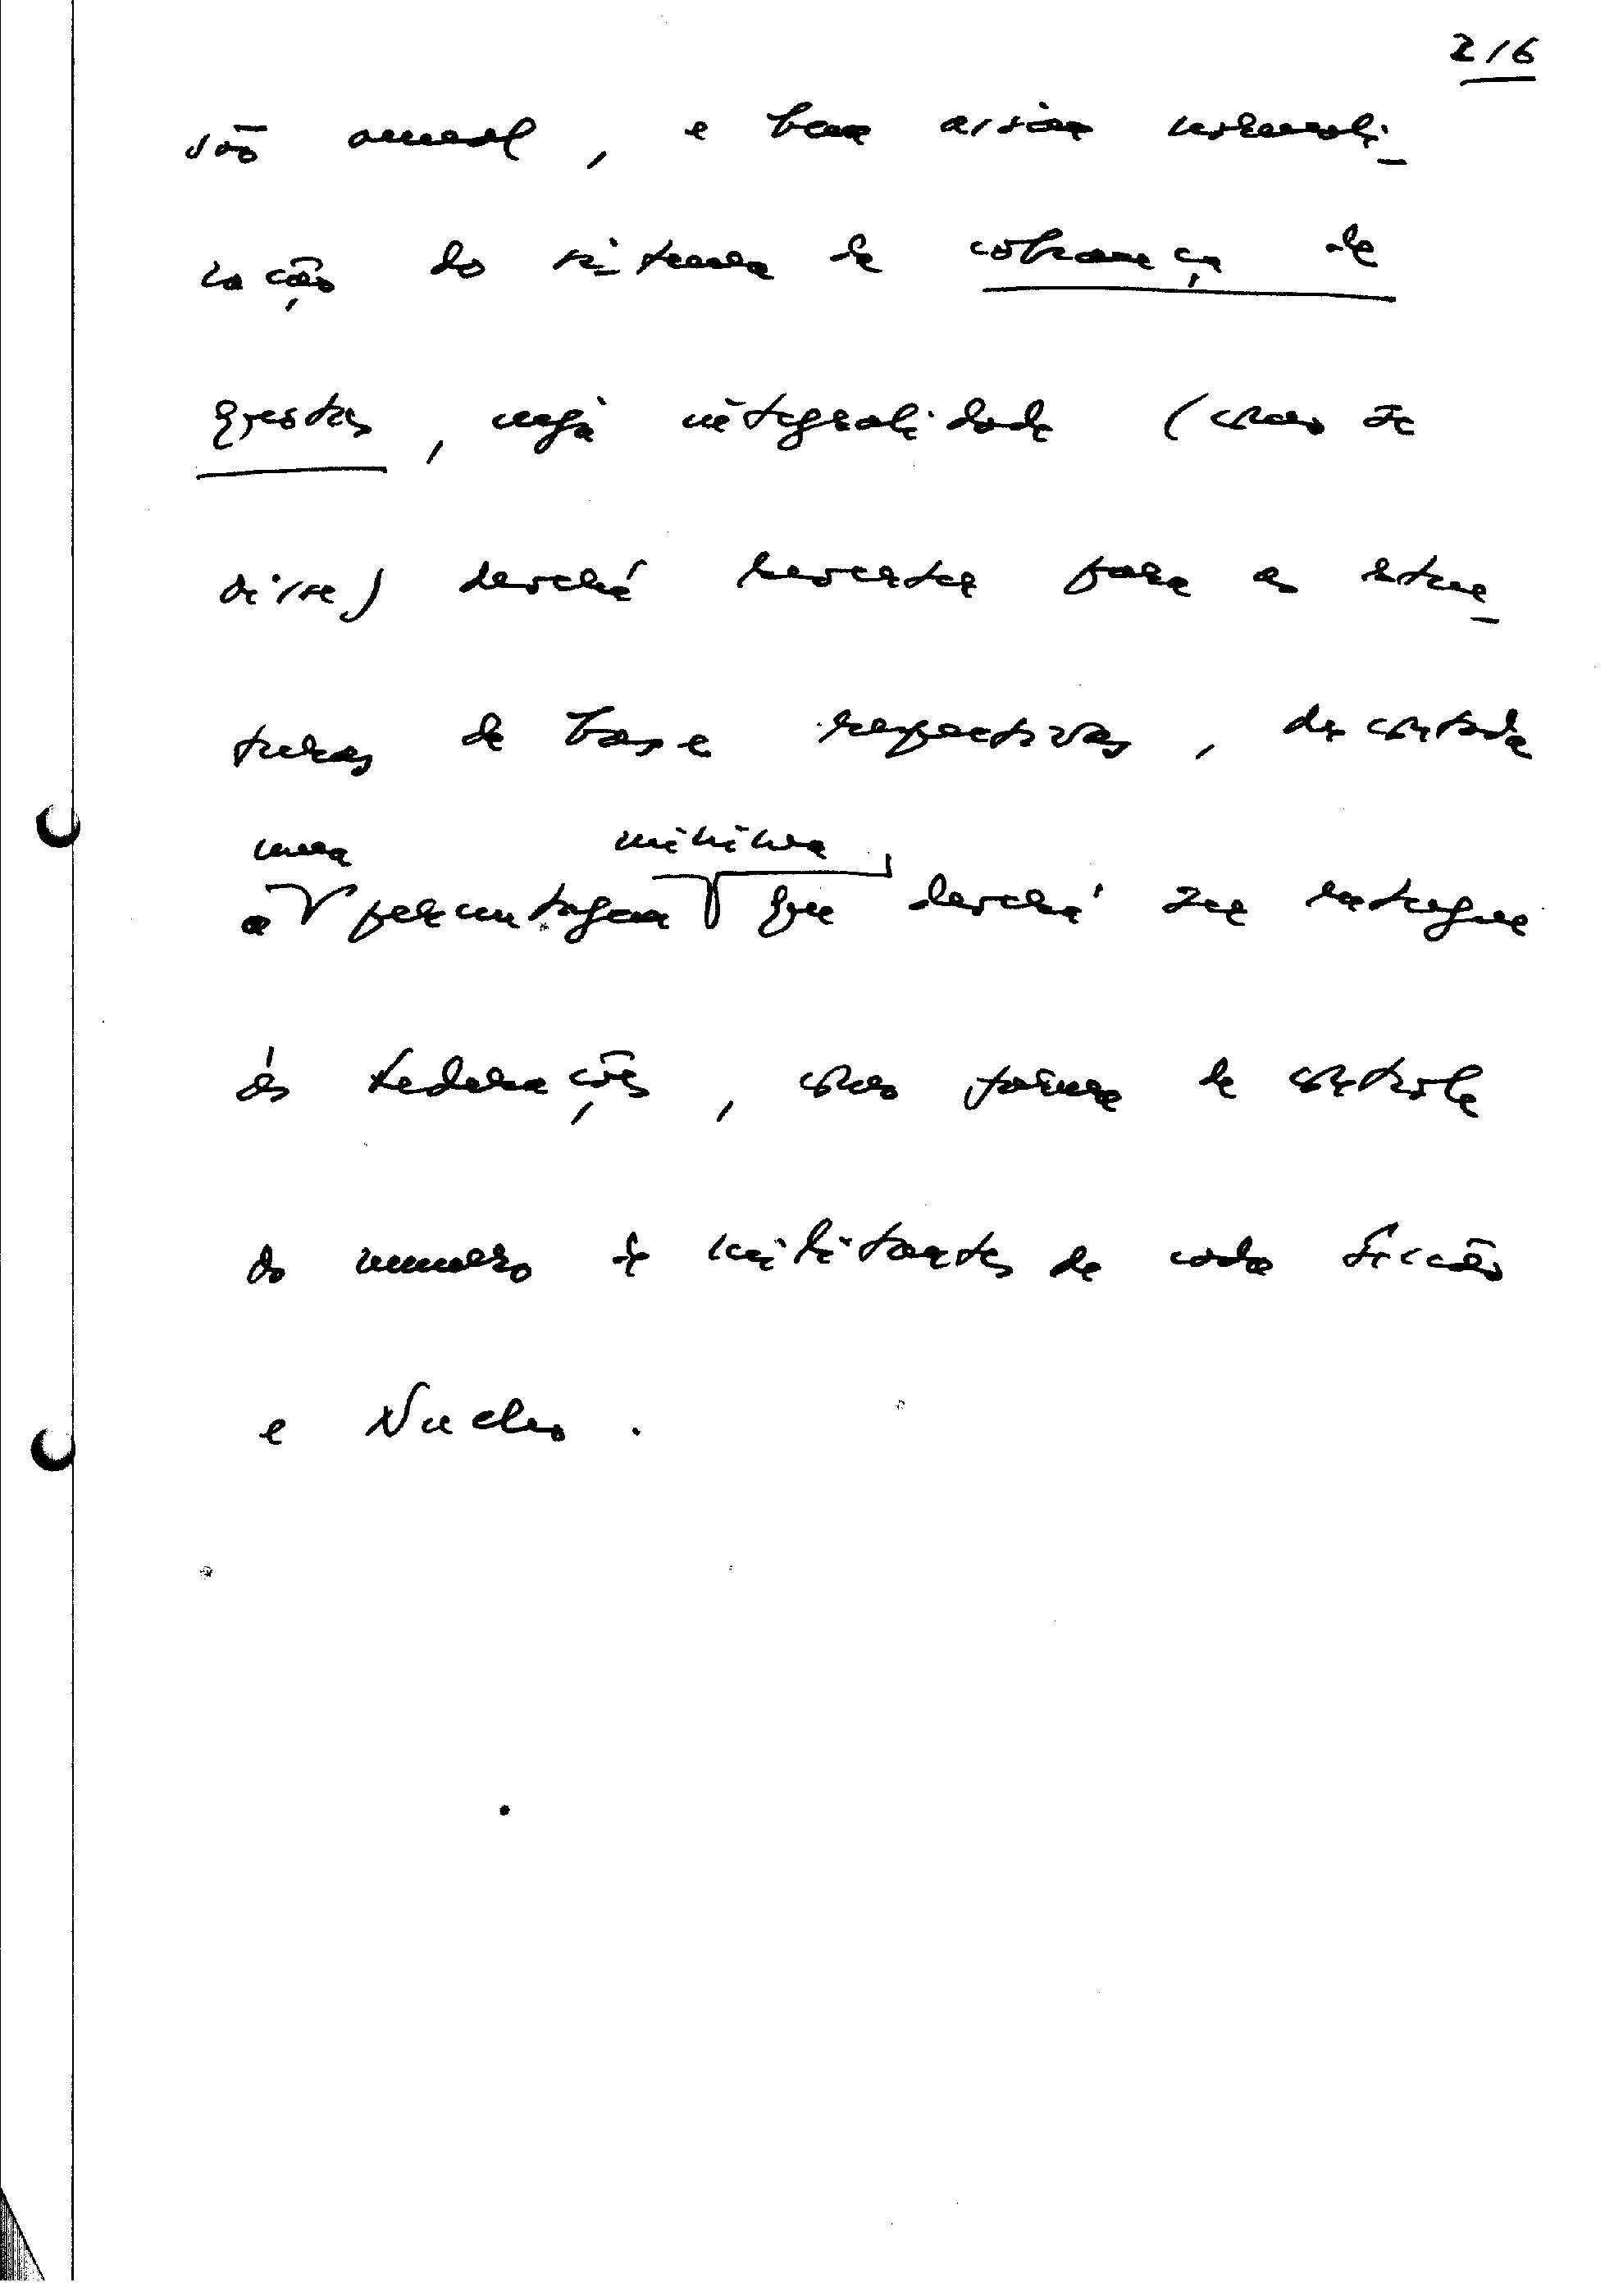 2/6
são anual, e bem assim normali-
zação do sistema de cobrança de
quotas, cuja integralidade (como se
disse) deverá reverter para as estru-
turas de base respectivas, descontada
uma mínima
a percentagem que deverá ser entregue
às Federações, como forma de controle
do numero de militantes de cada Secção
e Nucleo.